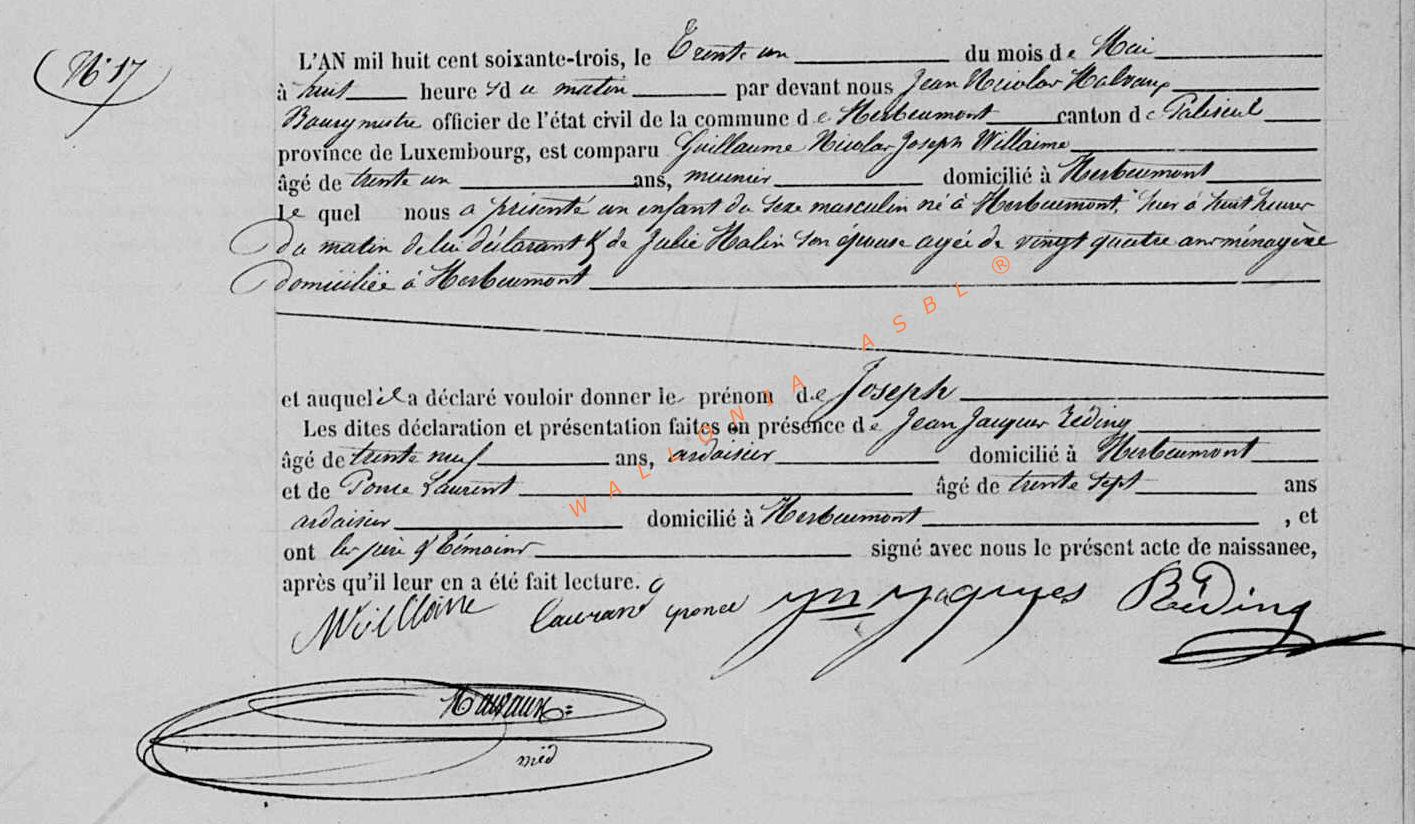 N° 17
L'AN mil huit cent soixante-trois, le Trente un du mois de Mai
à huit heures du matin par devant nous Jean Nicolas
Bourgmestre officier de l'état civil de la commune de Herbeumont canton de Paliseul
province de Luxembourg, est comparu Guillaume Nicolas Joseph Willaime
âgé de trente un ans, meunier domicilié à Herbeumont
le quel nous a présenté un enfant du sexe masculin né à Herbeumont, hier à huit heures
du matin de lui déclarant & de Julie Halin son épouse agée de vingt quatre ans ménagère
domiciliée à Herbeumont
et auquel il a déclaré vouloir donner le prénom de Joseph
Les dites déclaration et présentation faites en présence de Jean Jacques Réding
âgé de trente neuf ans, ardoisier domicilié à Herbeumont
et de Ponce Laurent âgé de trente sept ans
ardoisier domicilié à Herbeumont , et
ont les père & témoins signé avec nous le présent acte de naissance,
après qu'il leur en a été fait lecture.
Willaime laurant ponce jn jaques Réding
méd
WALLONIA ASBL ®